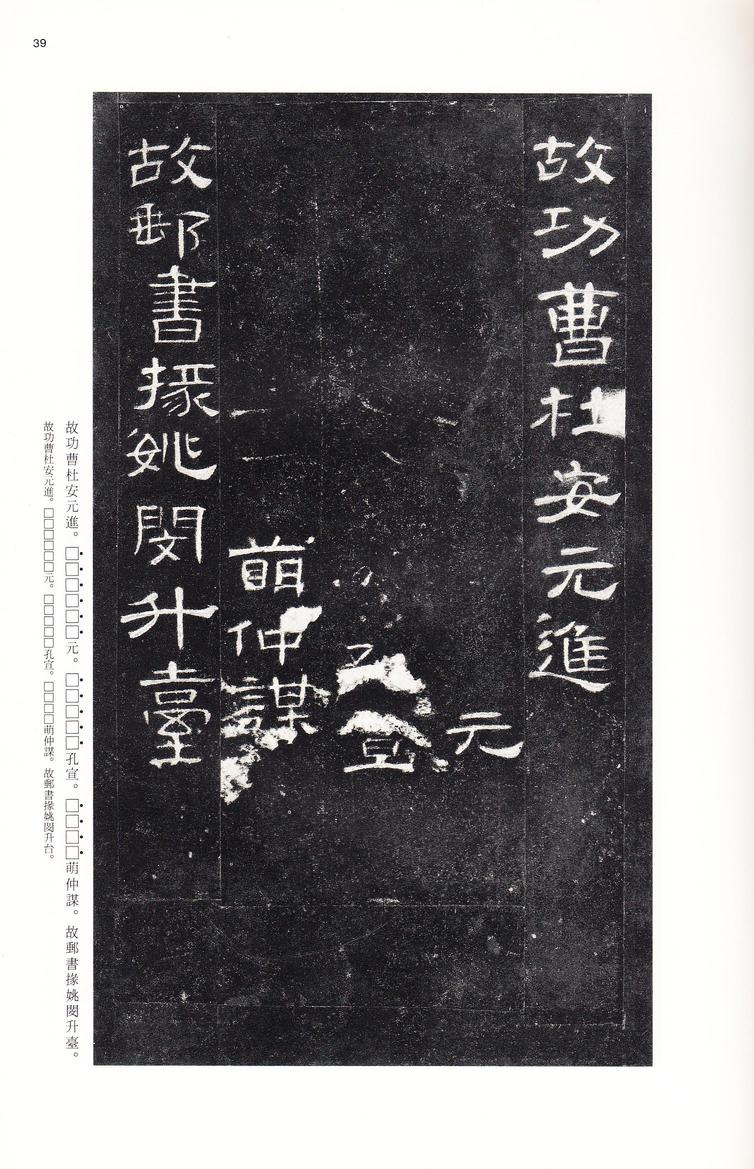 39
故功曹杜安元進
元
孔宣
萌仲謀
故郵書掾姚閔升臺
故功曹杜安元進。□□□□□□元。□□□□□孔宣。□□□□萌仲謀。故郵書掾姚閔升臺。
故功曹杜安元進。□□□□□□元。□□□□□孔宣。□□□□萌仲謀。故郵書掾姚閔升台。